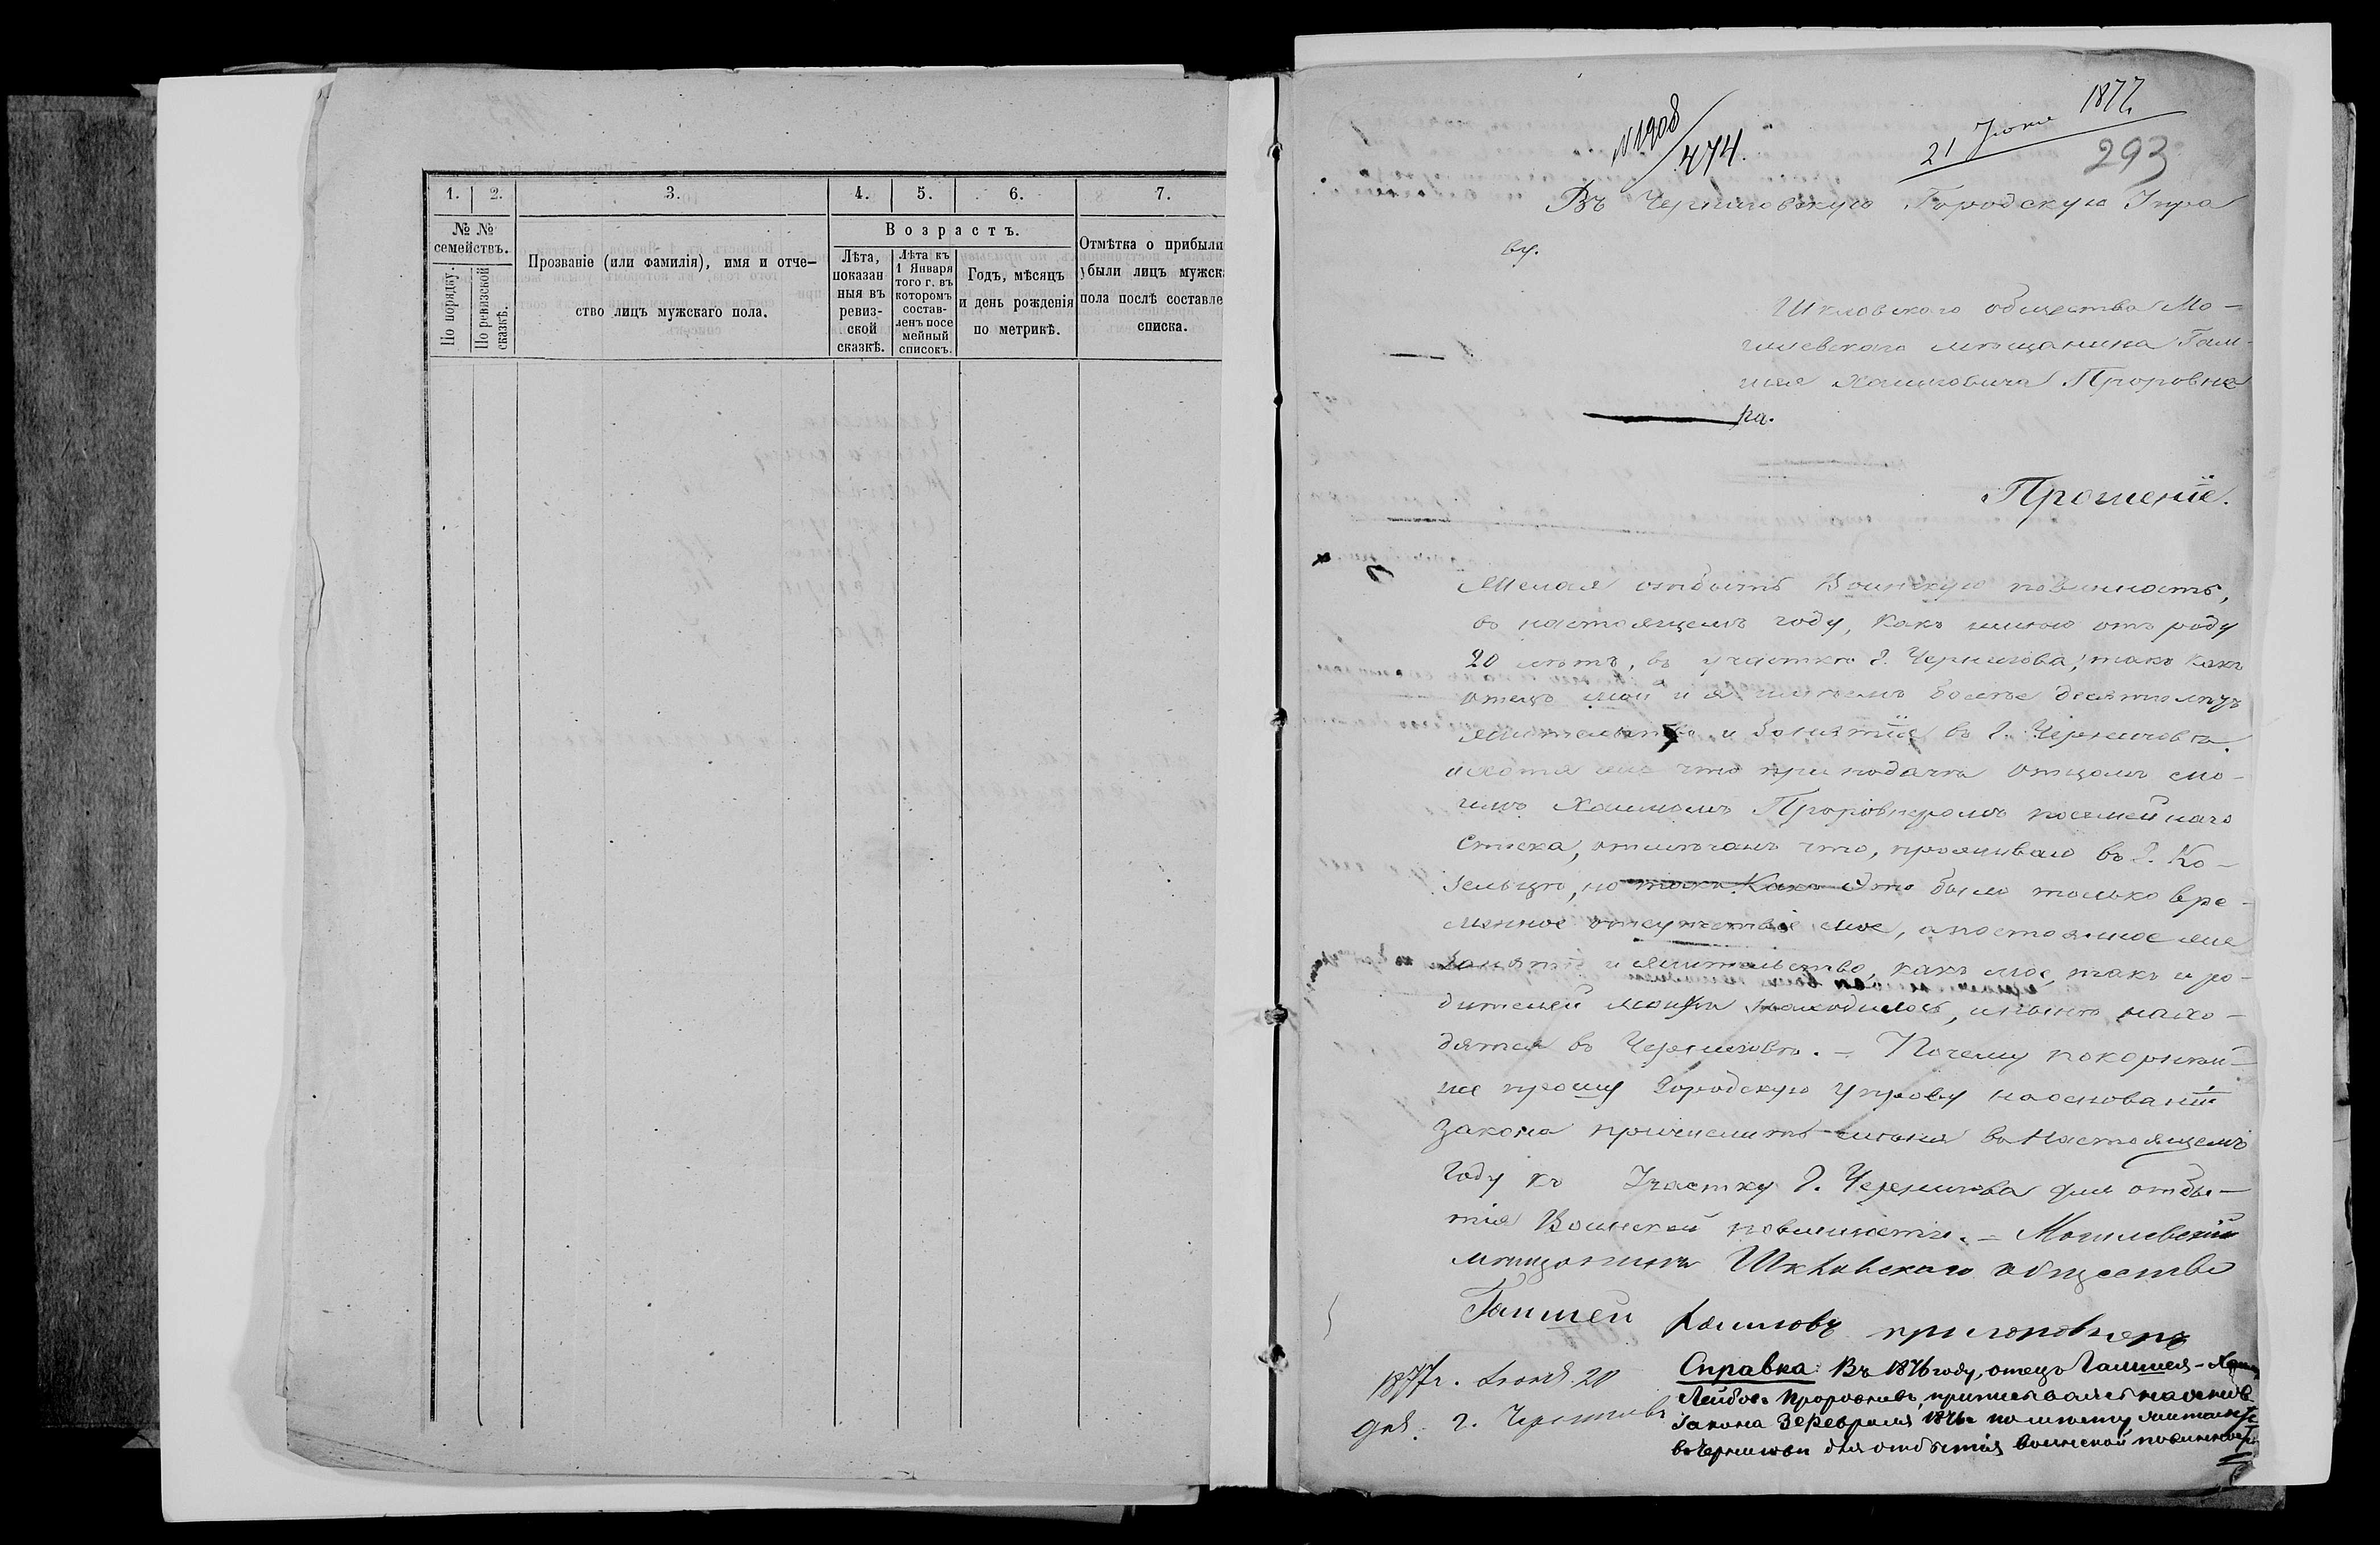 1.
2.
3.
4.
5.
6.
7.
№ №
семействъ.
По порядку.
По ревизской
сказкѣ.
Прозваніе (или фамилія), имя и отче-
ство лицъ мужскаго пола.
Возрастъ.
Лѣта,
показан
ныя въ
ревиз-
ской
сказкѣ.
Лѣта къ
1 Января
того г. въ
которомъ
состав-
ленъ посе
мейный
списокъ.
Годъ, мѣсяцъ
и день рожденія
по метрикѣ.
Отмѣтка о прибыли
убыли лицъ мужск
пола послѣ составле
списка.
№1908
474.
21 Іюня 1877
293
Въ Черниговскую Городскую Упра
ву.
Шкловскаго общества Мо-
гилевскаго мѣщанина Гам-
шея Хаимовича Проровне
ра.
Прошеніе.
Желая отбыть Воинскую повинность,
въ настоящемъ году, какъ имѣю отъ роду
20 лѣтъ, въ участкѣ г. Чернигова, такъ какъ
отецъ мой и я имѣемъ болѣе десяти лѣтъ
жительство и занятія въ г. Черниговѣ.
и хотя же что при подачѣ отцомъ мо-
имъ Хаимомъ Проровнеромъ посемейнаго
списка, отмѣчанъ что, проживаю въ г. Ко-
зельцѣ, но такъ какъ это было только вре-
менное отсутствіе мое, а постоянное же
занятіе и жительство, какъ мое, такъ и ро-
дителей моихъ находилось, и нынѣ нахо-
дятся въ Черниговѣ. – Почему покорнѣй-
ше прошу Городскую Управу на основаніи
закона причислить меня въ настоящемъ
году къ Участку г. Чернигова для отбы-
тія Воинской повинности. – Могилевскій
мѣщанинъ Шкловскаго общества
Гамшей Хаимовъ
1877 г. Іюня 20
дня. г. Черниговъ
Справка: Въ 1876 году, отецъ Гамшея - Хаимъ
Лейбов. приписывался на основ
Закона Февраля 1876 по мѣсту жительст
въ Черниговѣ для отбытія воинской повинности